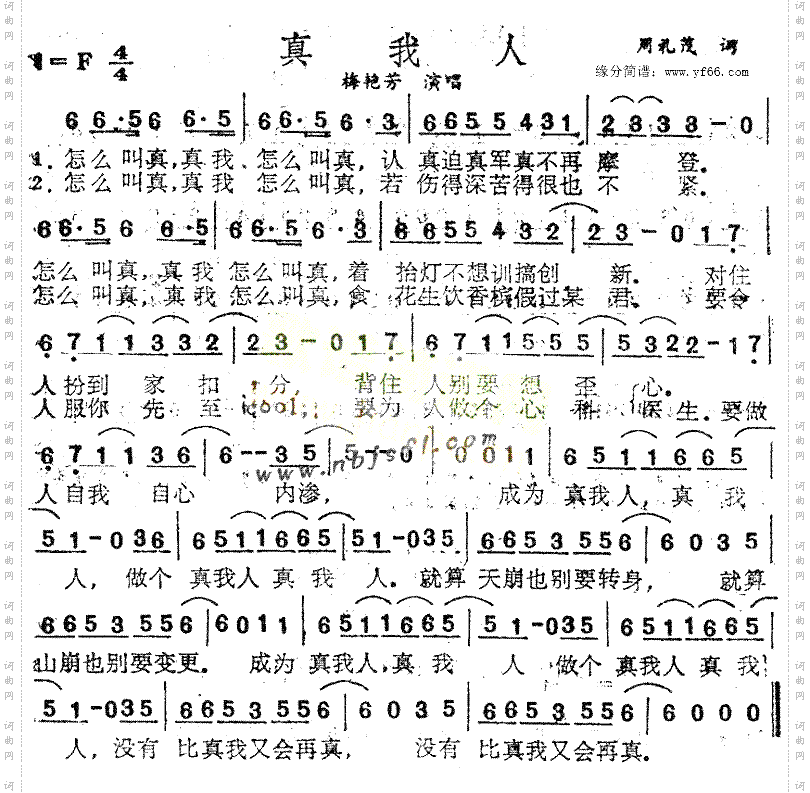 真 我 人
1=F 4/4
周礼茂 词
缘分简谱：www.yf66.com
梅艳芳 演唱
6 66·56 6·5 | 66·56 6·3 | 6655 431 | 2333-0
1. 怎么叫真,真我、怎么叫真,认 真迫真军真不再 摩 登.
2. 怎么叫真,真我 怎么叫真,若 伤得深苦得很也 不 紧.
66·56 6·5 | 66·56 6·3 | 6655 432 | 23-017
怎么叫真,真我 怎么叫真,着 抬灯不想训搞创 新. 对住
怎么叫真,真我怎么叫真,食 花生饮香槟假过某 君. 要令
6711332 | 23-017 | 6711555 | 5322-17
人扮到 家 扣 分, 背住 人别要 想 歪 心.
人服你 先 至 cool; 要为 人做个 心 科 医生. 要做
671136 | 6--35 | 5--0 | 0011 | 6511665
www.nbjsfl.com
人自我 自心 内渗, 成为 真我人,真 我
51-036 | 6511665 | 51-035 | 6653556 | 6035
人, 做个 真我人真 我 人. 就算 天崩也别要转身, 就算
6653556 | 6011 | 6511665 | 51-035 | 6511665
山崩也别要变更. 成为 真我人,真 我 人 做个 真我人真 我
51-035 | 6653556 | 6035 | 6653556 | 6000
人,没有 比真我又会再真, 没有 比真我又会再真.
词曲网